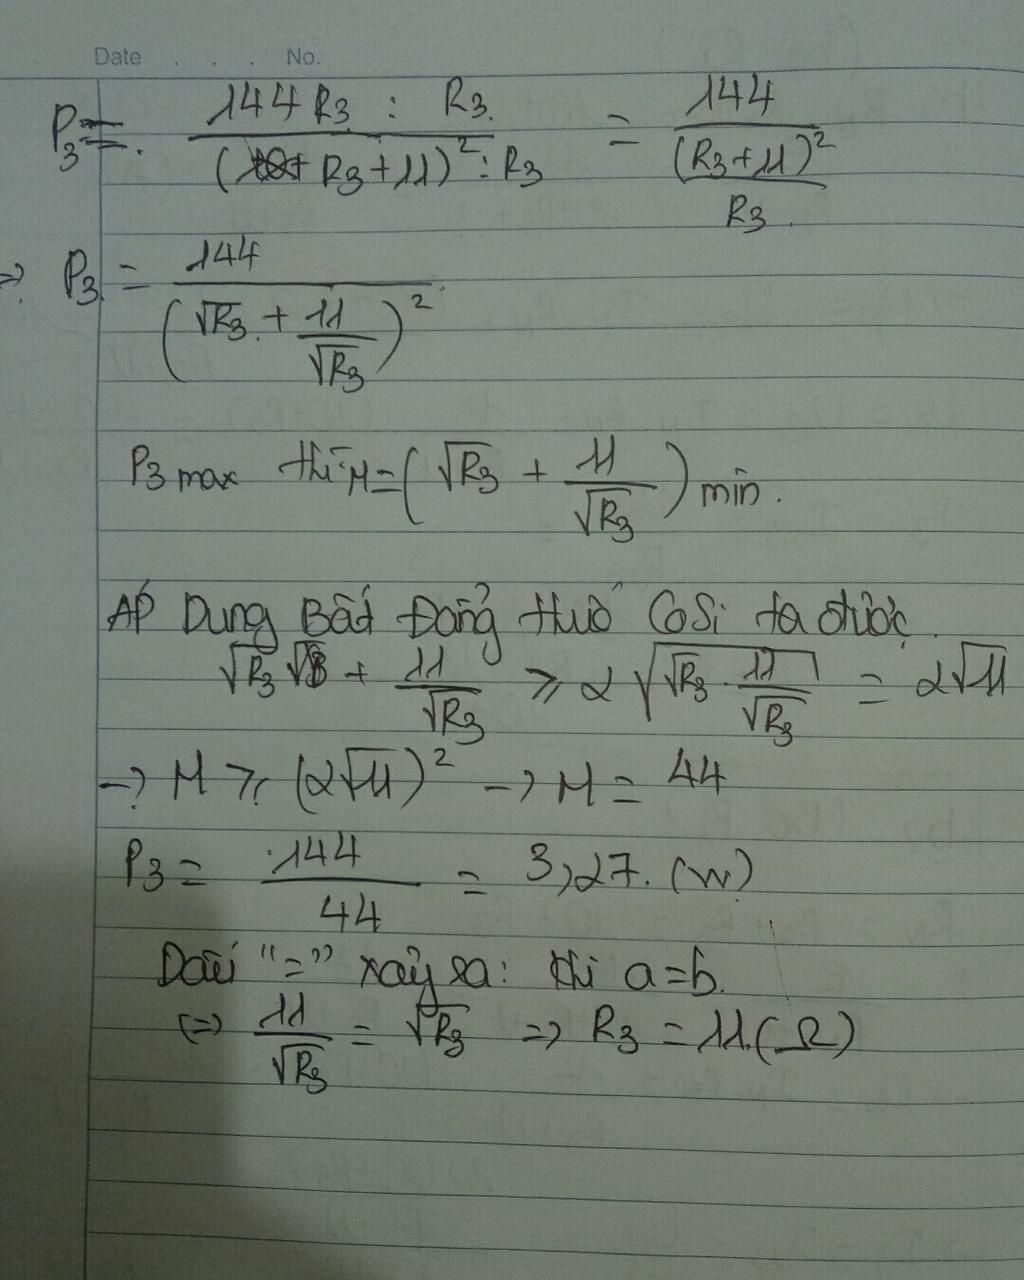 Date . . . No.
P₃ = \frac{144 R₃ : R₃}{(R₃ + 11)² : R₃} = \frac{144}{\frac{(R₃ + 11)²}{R₃}}
=> P₃ = \frac{144}{(√R₃ + \frac{11}{√R₃})²}
P₃ max thì M = (√R₃ + \frac{11}{√R₃}) min.
ÁP Dụng Bất Đẳng thức CoSi ta được
√R₃ + \frac{11}{√R₃} ≥ 2√(√R₃ . \frac{11}{√R₃}) = 2√11
-> M ≥ (2√11)² -> M = 44
P₃ = \frac{144}{44} = 3,27. (W)
Dấu "=" xảy ra: khi a = b.
(=>) \frac{11}{√R₃} = √R₃ => R₃ = 11. (Ω)